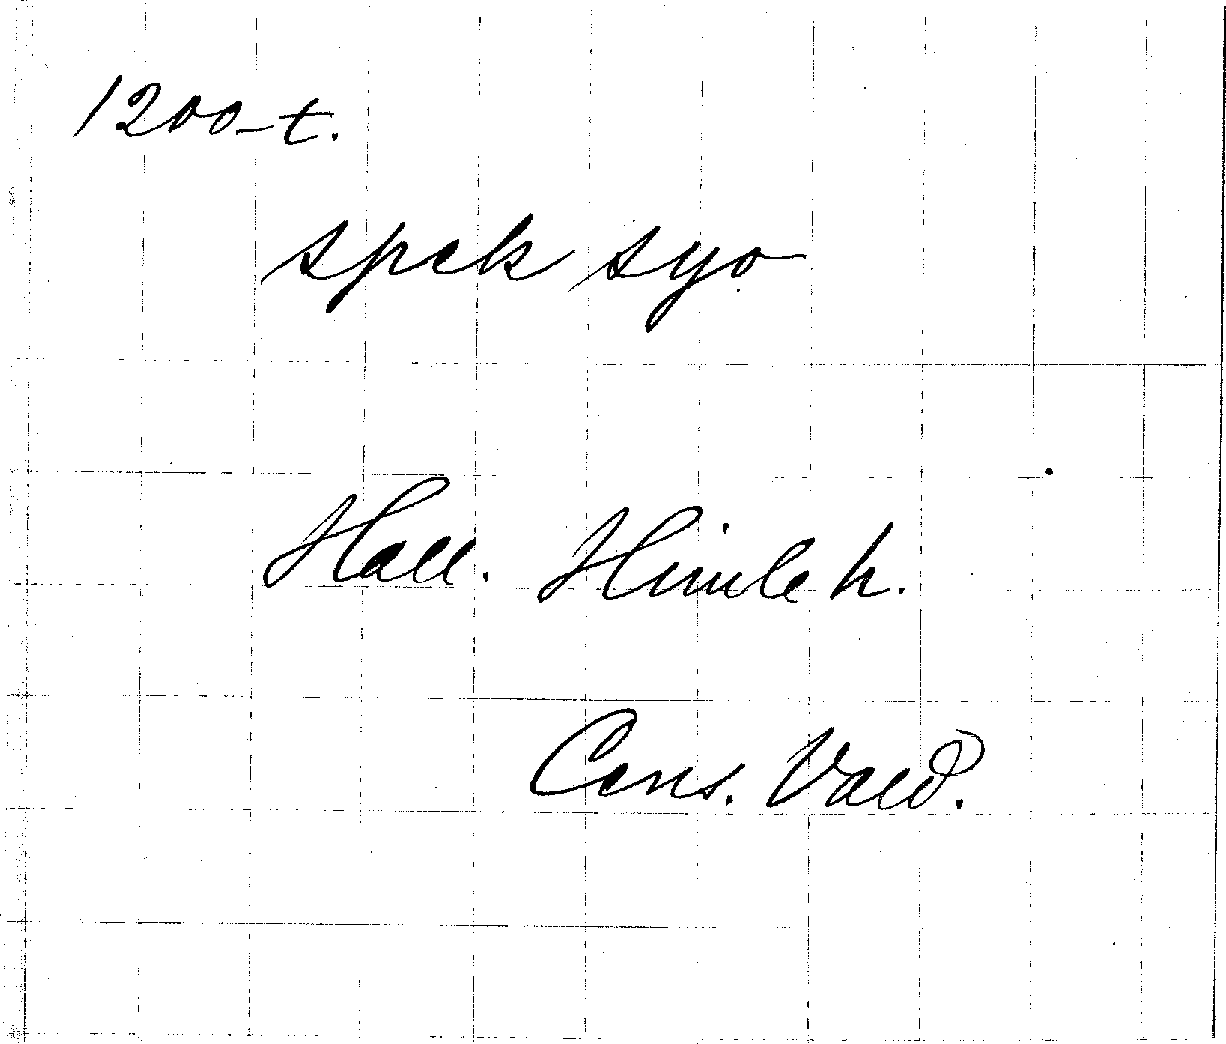 1200-t.
spek syo
Hall. Himle h.
Cens. Vald.